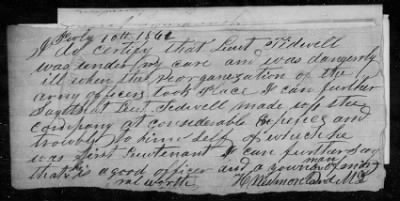 July 10th 1862
I do certify that Lieut Tidwell
was under my care and was dangerously
ill when the reorganization of the
army officers took place I can further
Say that Lieut Tidwell made up the
company at considerable Expence and
trouble to him self of which he
was first Lieutenant I can further Say
that is a good officer and a young man of
ral worth